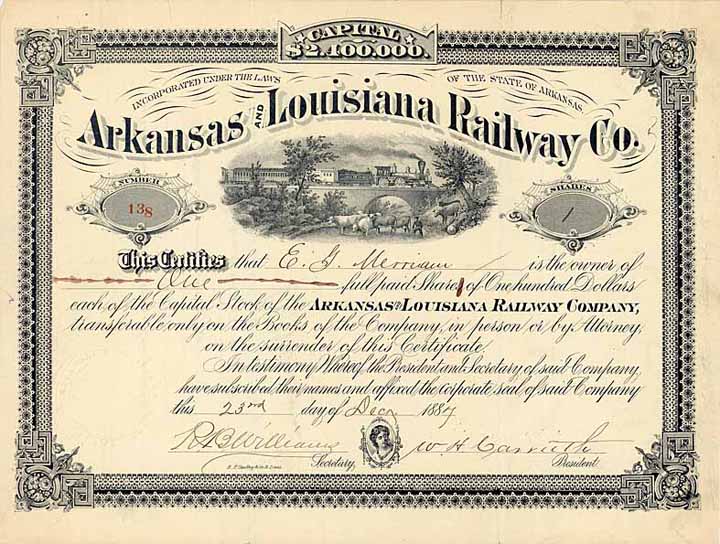 CAPITAL
$2,400,000.
INCORPORATED UNDER THE LAWS OF THE STATE OF ARKANSAS
Arkansas AND Louisiana Railway Co.
NUMBER
138
SHARES
1
This Certifies that E. G. Merriam is the owner of
One full paid Share of One hundred Dollars
each of the Capital Stock of the ARKANSAS AND LOUISIANA RAILWAY COMPANY,
transferable only on the Books of the Company, in person or by Attorney,
on the surrender of this Certificate
In testimony Whereof the President and Secretary of said Company,
have subscribed their names and affixed the corporate seal of said Company
this 23rd day of Dec 1887
R B Williams
Secretary,
W H
President